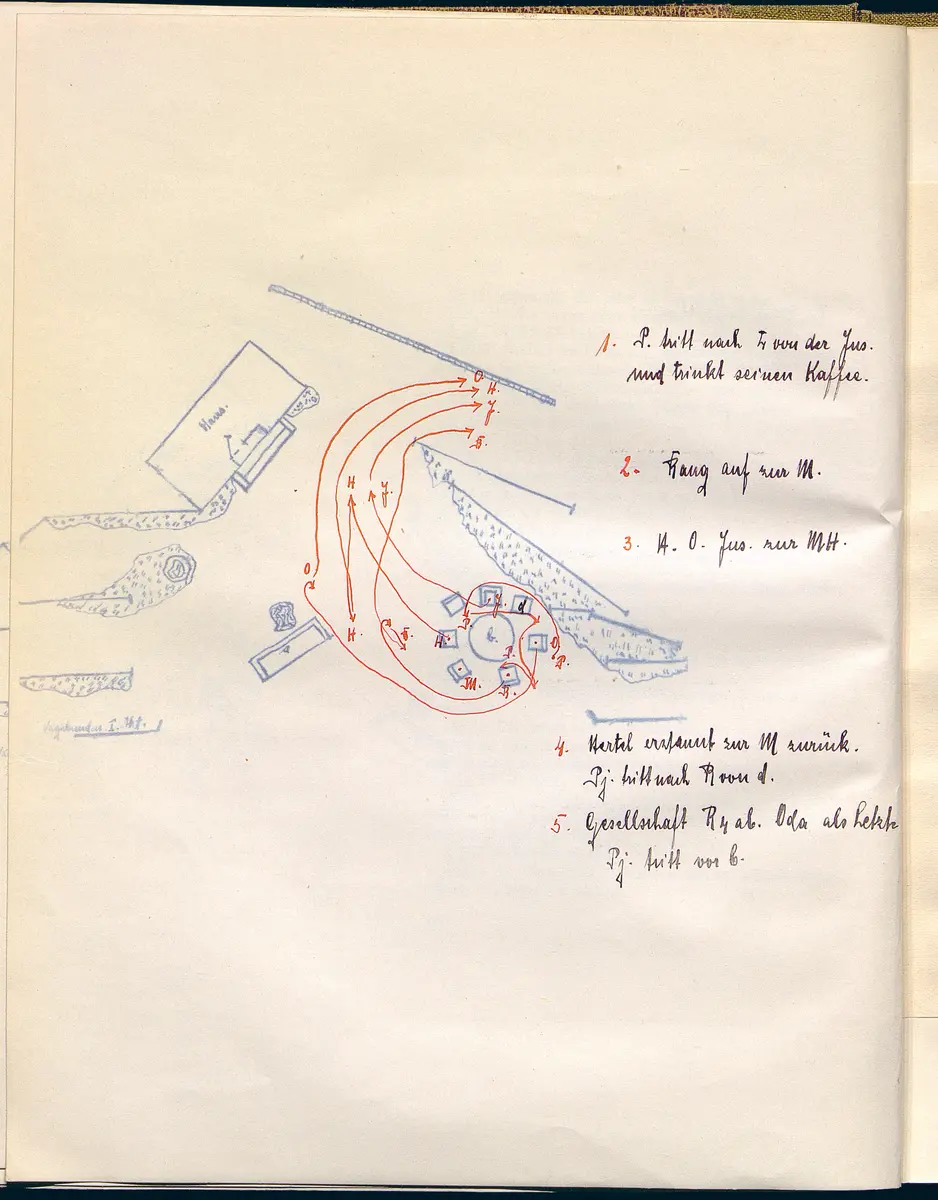 Haus.
O
H.
J.
H
J.
O
H.
P.
J.
d
H.
b.
P.
O
P.
M.
R.
1. P. tritt nach L von der Jus.
und trinkt seinen Kaffee.
2. auf zur M.
3. H. O. Jus. zur MH.
4. Hertel erstaunt zur M zurück.
Pj. tritt nach R von d.
5. Gesellschaft R4 ab. Oda als Letzte
Pj. tritt vor b.